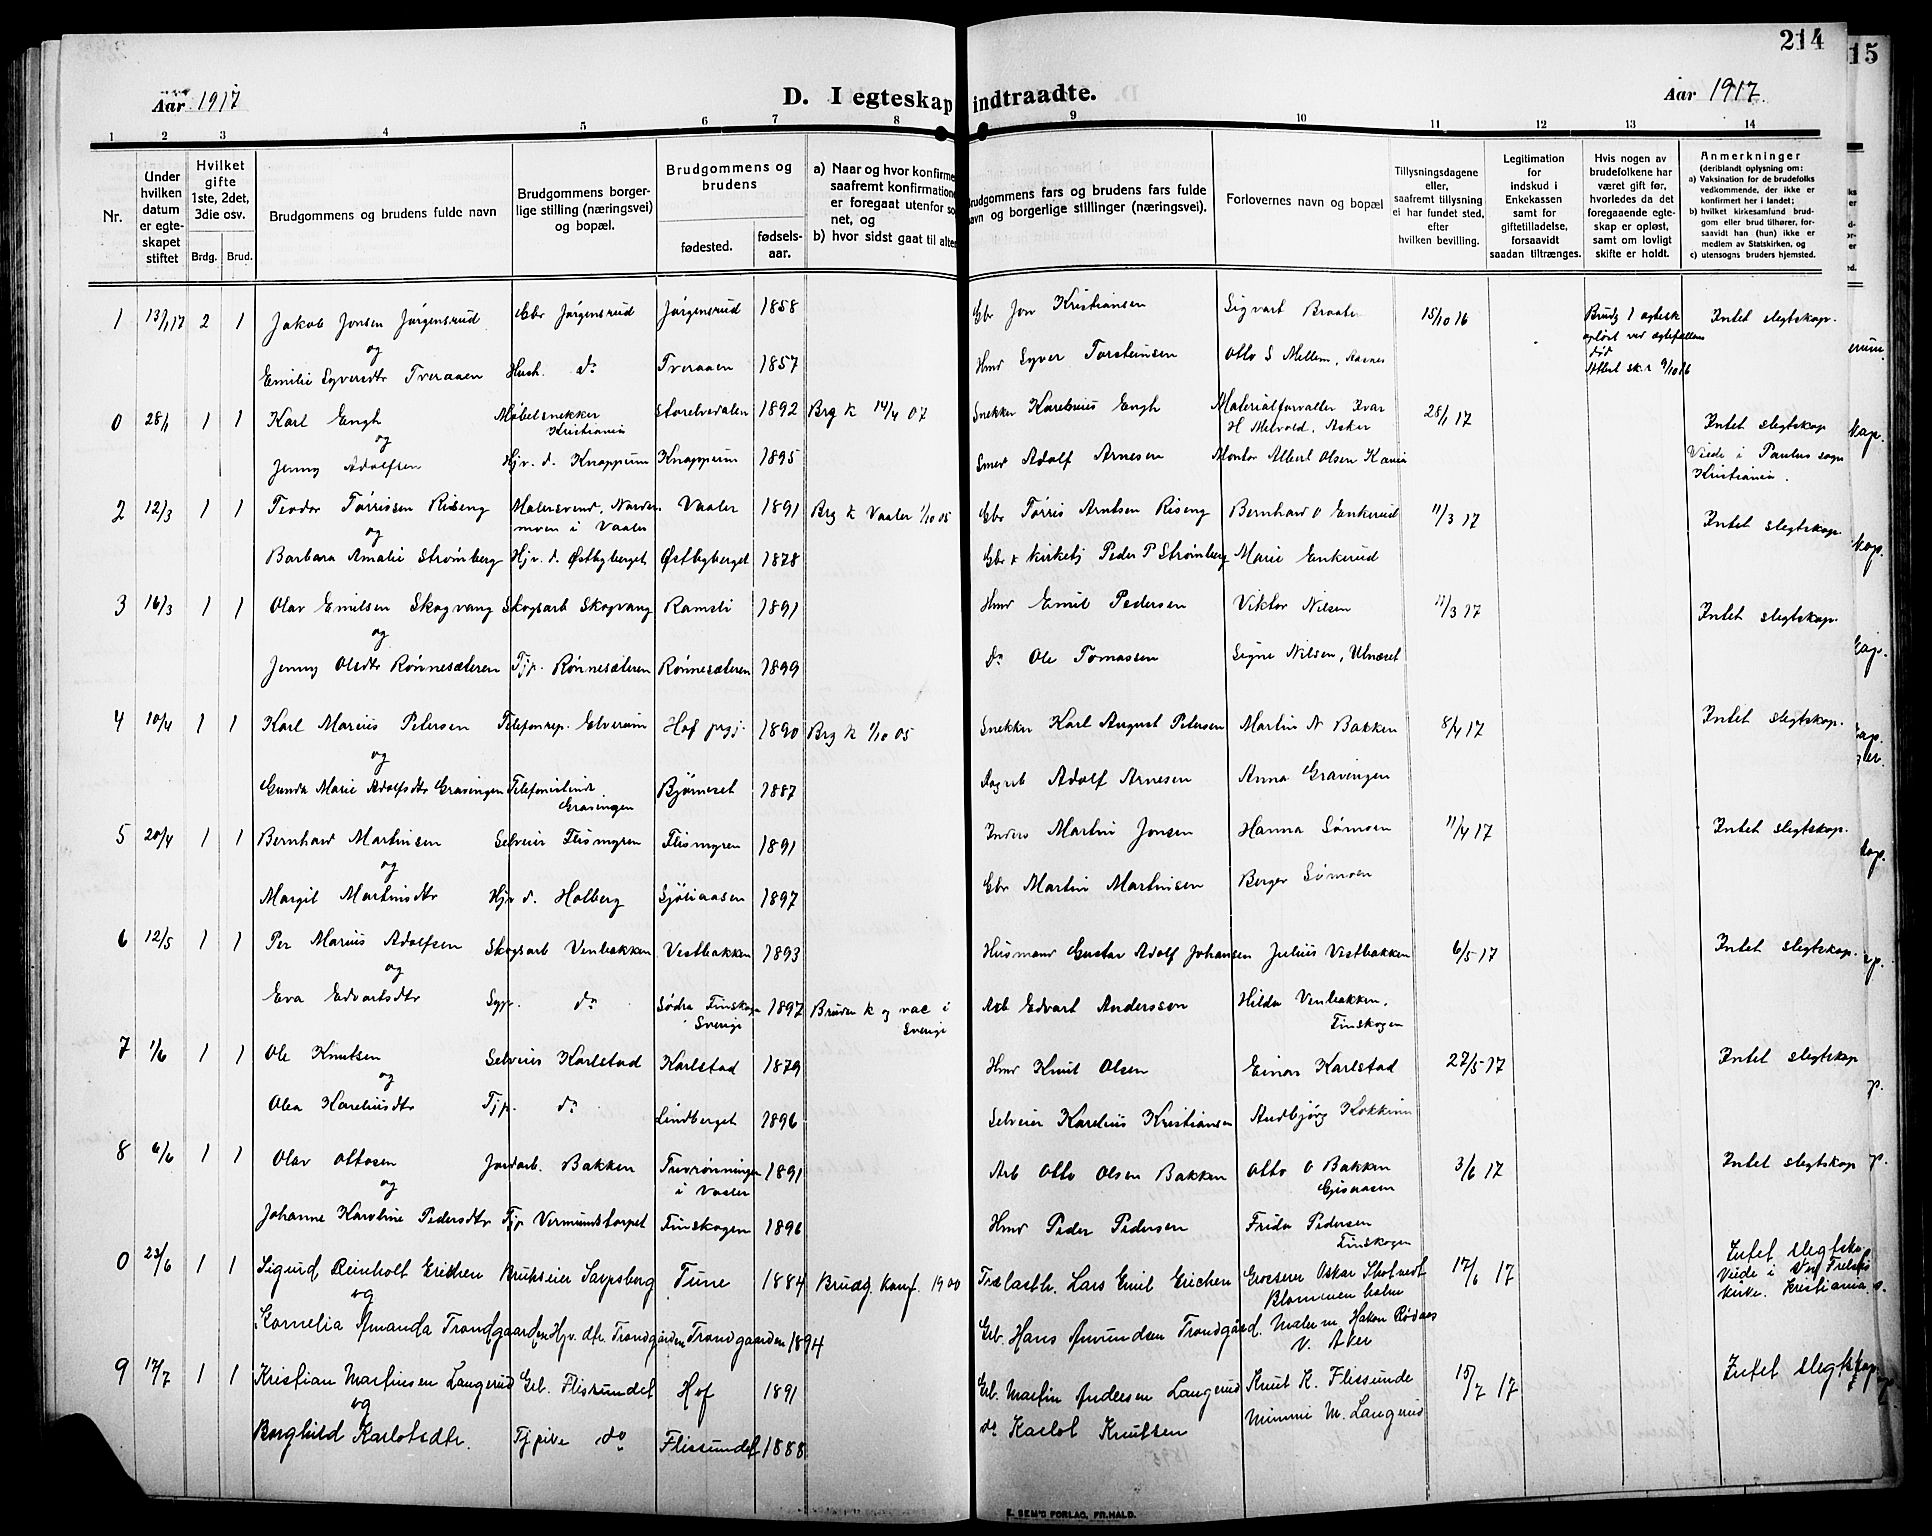 214
15
Aar 1917
D. I egteskap indtraadte.
Aar 1917.
1 2 3 4 5 6 7 8 9 10 11 12 13 14
Nr.
Under hvilken datum er egteskapet stiftet
Hvilket gifte 1ste, 2det, 3die osv.
Brdg. Brud.
Brudgommens og brudens fulde navn
Brudgommens borgerlige stilling (næringsvei) og bopæl.
Brudgommens og brudens
fødested.
fødselsaar.
a) Naar og hvor konfirme
saafremt konfirmation
er foregaat utenfor so
net, og
b) hvor sidst gaat til alte
Brudgommens fars og brudens fars fulde navn og borgerlige stillinger (næringsvei).
Forlovernes navn og bopæl
Tillysningsdagene eller, saafremt tillysning ei har fundet sted, efter hvilken bevilling.
Legitimation for indskud i Enkekassen samt for giftetilladelse, forsaavidt saadan tiltrænges.
Hvis nogen av brudefolkene har været gift før, hvorledes da det foregaaende egteskap er opløst, samt om lovligt skifte er holdt.
Anmerkninger
(deriblandt oplysning om:
a) Vaksination for de brudefolks vedkommende, der ikke er konfirmert her i landet;
b) hvilket kirkesamfund brudgom eller brud tilhører, forsaavidt han (hun) ikke er medlem av Statskirken, og
c) utensogns bruders hjemsted.
1 13/1 17 2 1 Jakob Jonsen Jørgensrud Gbr Jørgensrud Jørgensrud 1858 Gbr Jon Kristiansen Sigvart Braaten 15/10 16 Brudg 1 egtesk opløst ved egtefællens død Attest sk.r 9/10 16 Intet slegtskap.
og
Emilie Syversdtr Tveraaen Hush. do Tveraaen 1857 Hmd Syver Torsteinsen Otto S Mellem, Aasnes
0 28/1 1 1 Karl Engh Møbelsnekker Kristiania Storelvedalen 1892 Brg k 14/4 07 Snekker Karelius Engh Materialforvalter Ivar H Melvold, Asker 28/1 17 Intet slegtskap
og
Jenny Adolfsen Hjv. d. Knappum Knappum 1895 Smed Adolf Arnesen Montør Albert Olsen Kania Viede i Paulus sogn Kristiania.
2 12/3 1 1 Teodor Tørrissen Riseng Malersvend, Nordermoen i Vaaler Vaaler 1891 Brg k Vaaler 1/10 05 Gbr Tørris Arntsen Riseng Bernhard O Enkerud 11/3 17 Intet slegtskap.
og
Barbara Amalie Strømberg Hjv. d. Østbyberget Østbyberget 1878 Gbr + kirketj Peder P Strømberg Marie Enkerud
3 16/3 1 1 Olav Emilsen Skogvang Skogsarb Skogvang Ramsli 1891 Hmd Emil Pedersen Viktor Nilsen 11/3 17 Intet slegtskap.
og
Jenny Olsdtr Rønnesæteren Tjp. Rønnesæteren Rønnesæteren 1899 do Ole Tomassen Signe Nilsen, Ulneset
4 10/4 1 1 Karl Marius Petersen Telefonrep. Elverum Hof prgj. 1890 Brg k 1/10 05 Snekker Karl August Petersen Martin N Bakken 8/4 17 Intet slegtskap.
og
Gunda Marie Adolfsdtr Grasingen Telefonistinde Grasingen Bjørneset 1887 Dagarb Adolf Arnesen Anna Gravingen
5 20/4 1 1 Bernhard Martinsen Selveier Flismyren Flismyren 1891 Inders Martin Jonsen Hanna Sømoen 11/4 17 Intet slegtskap.
og
Margit Martinsdtr Hjv d. Holberg Sjøliaasen 1897 Gbr Martin Martinsen Berger Sømoen
6 12/5 1 1 Per Marius Adolfsen Skogsarb Venbakken Vestbakken 1893 Husmand Gustav Adolf Johansen Julius Vestbakken 6/5 17 Intet slegtskap.
og
Eva Edvartsdtr Syp. do Södra Finskoga i Sverige 1897 Bruden k og vac i Sverige Arb Edvart Andersson Hilda Venbakken, Finskogen
7 1/6 1 1 Ole Knutsen Selveier Karlstad Karlstad 1879 Hmd Knut Olsen Einar Karlstad 27/5 17 Intet slegtskap
og
Olea Kareliusdtr Tjp. do Lindberget 1896 Selveier Karelius Kristiansen Andbjørg Kokkinn
8 6/6 1 1 Olav Ottosen Jordarb. Bakken Turrønningen i Vaaler 1891 Arb Otto Olsen Bakken Otto O Bakken Gjesaasen 3/6 17 Intet slegtskap
og
Johanne Karoline Pedersdtr Tjp Vermundstorpet Finskogen 1896 Hmd Peder Pedersen Frida Pedersen Finskogen
0 23/6 1 1 Sigurd Reinholt Erichsen Brukseier Sarpsborg Tune 1884 Brudg. konf. 1900 Trælasth. Lars Emil Erichsen Grosserer Oskar Skotvedt Blommenholm 17/6 17 Intet slegtska. Viede i Vor Frelsers kirke. Kristiania.
og
Kornelia Amanda Trondgaarden Hjv. dtr. Trondgården Trondgaarden 1894 Gb. Hans Amundsen Trondgård. Malerm. Hakon Rødaas V. Aker
9 17/7 1 1 Kristian Martinsen Langerud Gb. Flissundet Hof 1891 Gb. Martin Andersen Langerud Knut K. Flissunde 15/7 17 Intet slegtskap
og
Borghild Karlotsdtr. Tjpike do Flissundet 1888 do Karlot Knutsen Mimmi M. Langerud
E. SEM'S FORLAG, FR.HALD.